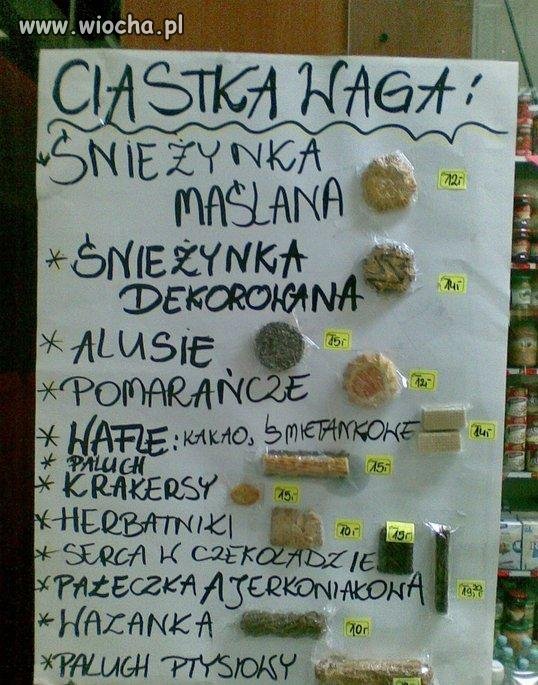 www.wiocha.pl
CIASTKA WAGA:
* ŚNIEŻYNKA
MAŚLANA 12,-
* ŚNIEŻYNKA
DEKOROWANA 14,-
* ALUSIE 15,-
* POMARAŃCZE 12,-
* WAFLE: KAKAO, ŚMIETANKOWE 14,-
* PALUCH 15,-
* KRAKERSY 15,-
* HERBATNIKI 10,-
* SERCA W CZEKOLADZIE 15,-
* PAŁECZKA AJERKONIAKOWA 19,20
* WAZANKA 10,-
* PALUCH PTYSIOWY